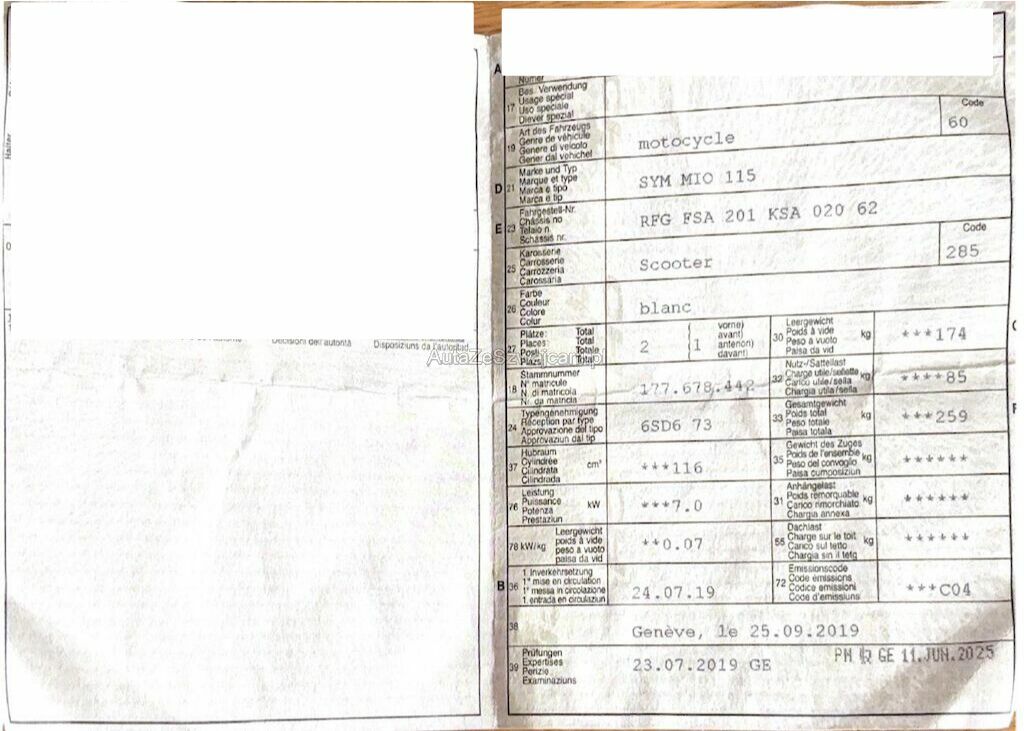 Halter
Decisioni dell'autorità Disposiziuns da l'autoritad
A
17 Bes. Verwendung
Usage spécial
Uso speciale
Diever spezial
19 Art des Fahrzeugs
Genre de véhicule
Genere di veicolo
Gener dal vehichel
motocycle
Code
60
D 21 Marke und Typ
Marque et type
Marca e tipo
Marca e tip
SYM MIO 115
E 23 Fahrgestell-Nr.
Châssis no
Telaio n.
Schassis nr.
RFG FSA 201 KSA 020 62
25 Karosserie
Carrosserie
Carrozzeria
Carossaria
Scooter
Code
285
26 Farbe
Couleur
Colore
Colur
blanc
27 Plätze: Total
Places: Total
Posti: Totale
Plazs: Total
2
vorne)
avant)
anteriori)
davant)
1
30 Leergewicht
Poids à vide
Peso a vuoto
Paisa da vid
kg
***174
18 Stammnummer
N° matricule
N. di matricola
Nr. da matricla
177.678.442
32 Nutz-/Sattellast
Charge utile/sellette
Carico utile/sella
Chargia utila/sella
kg
****85
24 Typengenehmigung
Réception par type
Approvazione del tipo
Approvaziun dal tip
6SD6 73
33 Gesamtgewicht
Poids total
Peso totale
Paisa totala
kg
***259
37 Hubraum
Cylindrée
Cilindrata
Cilindrada
cm³
***116
35 Gewicht des Zuges
Poids de l'ensemble
Peso del convoglio
Paisa cumposiziun
kg
******
76 Leistung
Puissance
Potenza
Prestaziun
kW
***7.0
31 Anhängelast
Poids remorquable
Carico rimorchiato
Chargia annexa
kg
******
78 kW/kg Leergewicht
poids à vide
peso a vuoto
paisa da vid
**0.07
55 Dachlast
Charge sur le toit
Carico sul tetto
Chargia sin il tetg
kg
******
B 36 1. Inverkehrsetzung
1re mise en circulation
1a messa in circolazione
1. entrada en circulaziun
24.07.19
72 Emissionscode
Code émissions
Codice emissioni
Code d'emissiuns
***C04
38
Genève, le 25.09.2019
39 Prüfungen
Expertises
Perizie
Examinaziuns
23.07.2019 GE
GE 11.JUN.2025